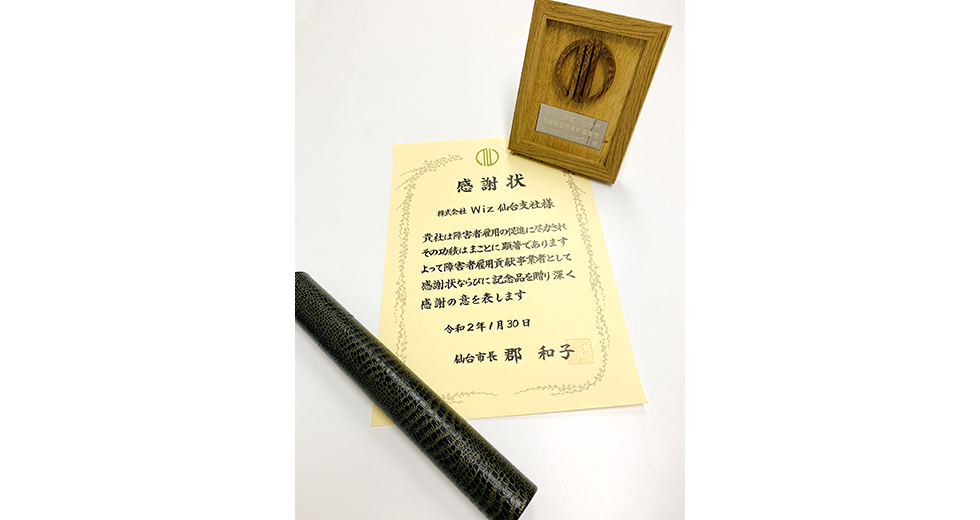 感謝状
株式会社 Wiz 仙台支社様
貴社は障害者雇用の促進に尽力され
その功績はまことに顕著であります
よって障害者雇用貢献事業者として
感謝状ならびに記念品を贈り深く
感謝の意を表します
令和2年1月30日
仙台市長 郡 和子